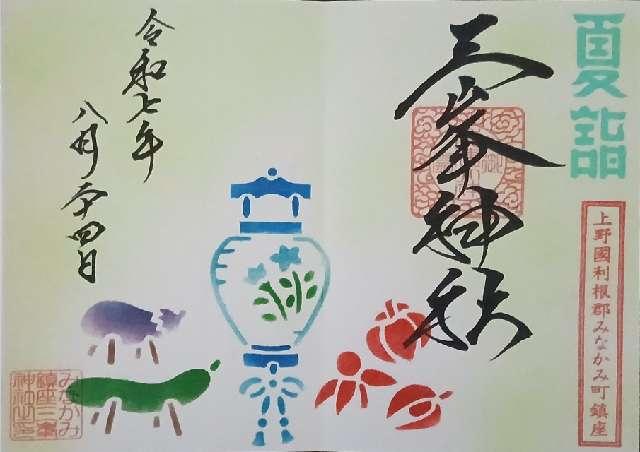 夏詣
上野國利根郡みなかみ町鎮座
三峯神社
令和七年
八月二十四日
みなかみ
鎮座三峯
神社之印